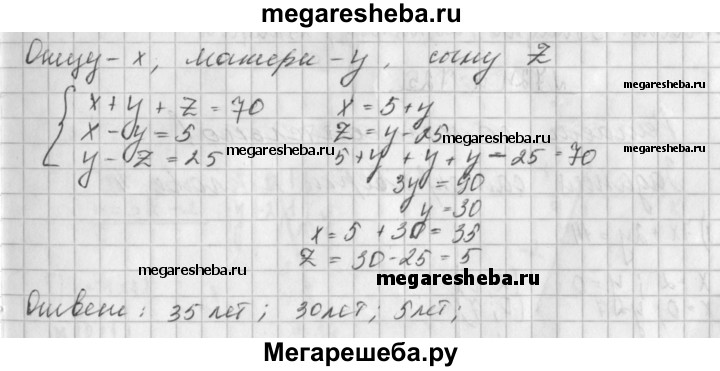 megaresheba.ru
Отцу - x, матери - y, сыну Z
x + y + z = 70 x = 5 + y
megaresheba.ru
x - y = 5 z = y - 25 megaresheba.ru
y - z = 25 megaresheba.ru 5 + y + y + y - 25 = 70 megaresheba.ru
3y = 90
y = 30
x = 5 + 30 = 35
z = 30 - 25 = 5
megaresheba.ru megaresheba.ru
Ответ: 35 лет; 30 лет; 5 лет;
Мегарешеба.ру